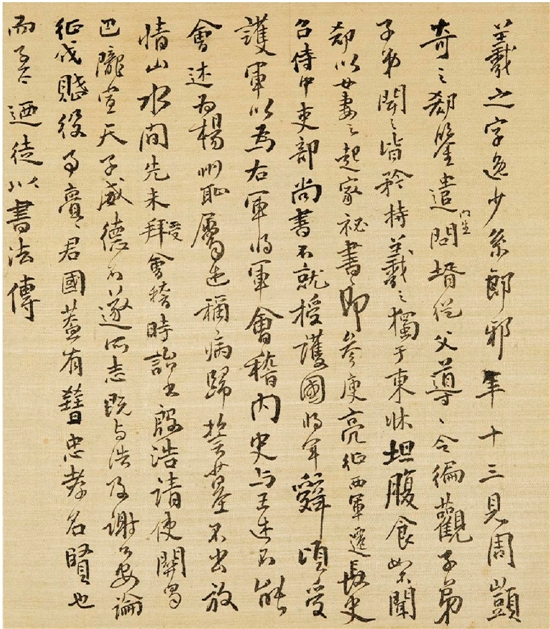 羲之字逸少系郎邪年十三見周顗
奇之郗鑒遣門生問壻從父導〻令徧觀子弟
子弟聞之皆矜持羲之獨于東牀坦腹食如不聞
郗以女妻之起家祕書郎參庾亮征西軍遷長史
召侍中吏部尚書不就授護國將軍辭頃受
護軍以為右軍將軍會稽內史与王述不能
會述為楊州恥屬述稱病歸誓墓不出放
情山水間先未拜受會稽時詒書殷浩請使關蜀
巴隴宣天子威德不遂所志既与浩及謝安論
征戍賦役事亹〻君國蓋有晉忠孝名賢也
而吾迺徒以書法傳